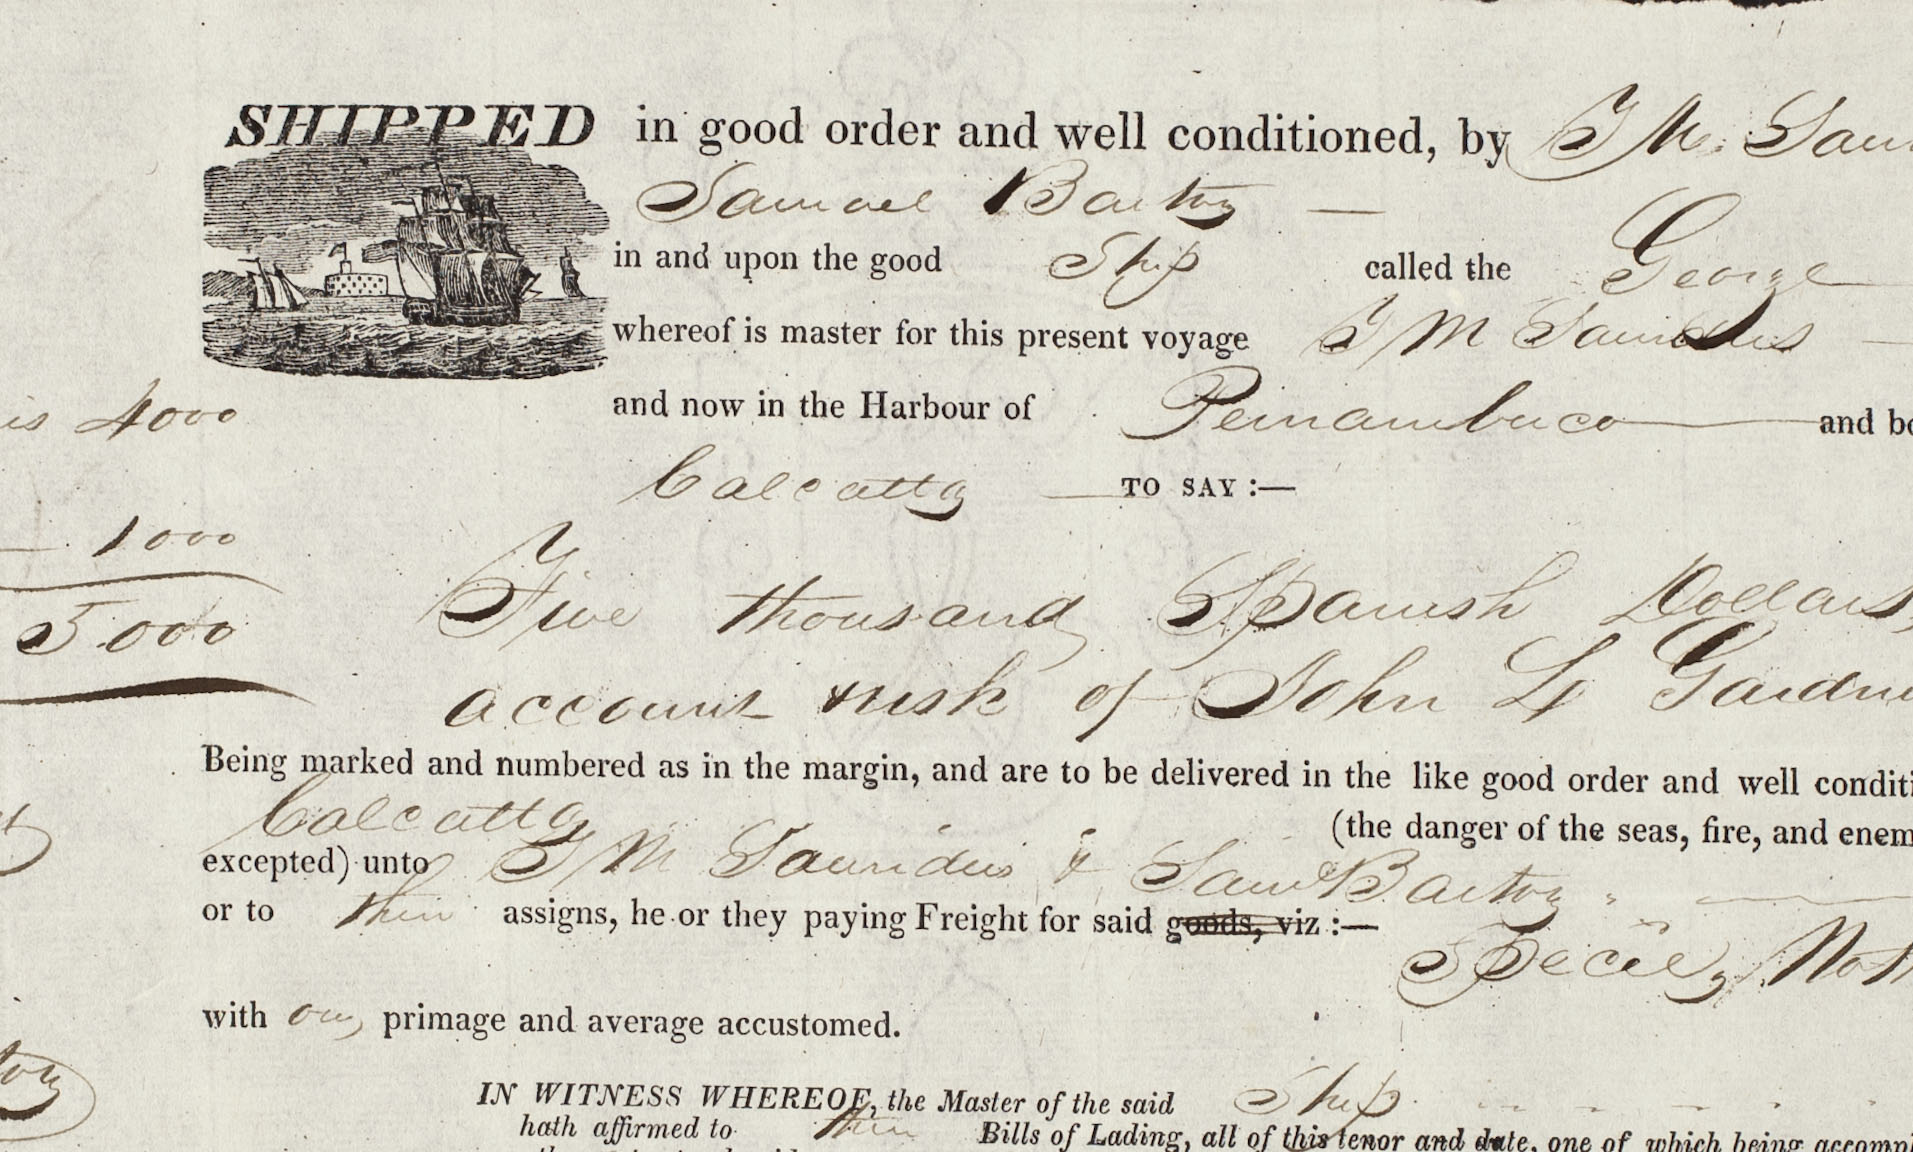 SHIPPED in good order and well conditioned, by T M. Saun
Samuel Barton —
in and upon the good Ship called the George
whereof is master for this present voyage T M Saunders —
and now in the Harbour of Pernambuco and bo
is 4000
Calcutta TO SAY :—
1000
Five thousand Spanish Dollars,
5.000
account & risk of John L Gardne
Being marked and numbered as in the margin, and are to be delivered in the like good order and well conditi
Calcutta (the danger of the seas, fire, and enem
excepted) unto T M Saunders & Saml Barton
or to their assigns, he or they paying Freight for said goods, viz :—
Specie, Noth
with out primage and average accustomed.
IN WITNESS WHEREOF, the Master of the said Ship
hath affirmed to Bills of Lading, all of this tenor and date, one of which being accompl